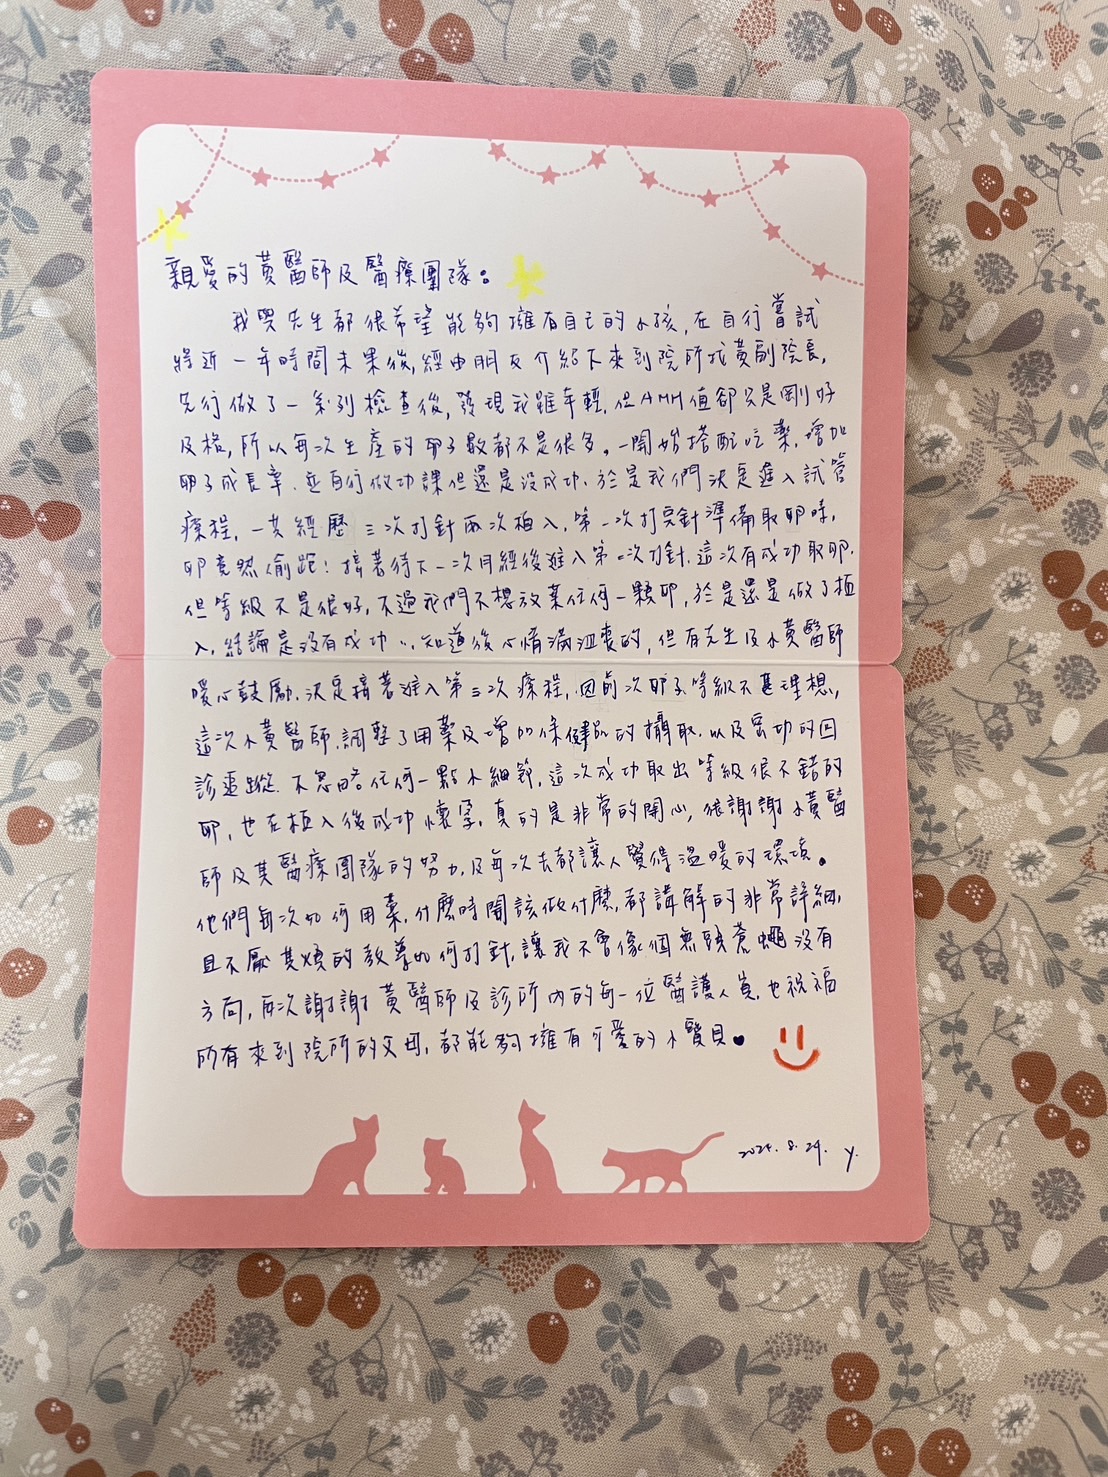 親愛的黃醫師及醫療團隊。
我與先生都很希望能夠擁有自己的小孩,在自行嘗試
將近一年時間未果後,經由朋友介紹下來到院所找黃副院長,
先行做了一系列檢查後,發現我雖年輕,但AMH值卻只是剛好
及格,所以每次生產的卵子數都不是很多。一開始搭配吃藥,增加
卵子成長率.並自行做功課但還是沒成功.於是我們決定進入試管
療程,一共經歷三次打針兩次植入,第一次打完針準備取卵時,
卵竟然偷跑!接著待下一次月經後進入第二次打針,這次有成功取卵.
但等級不是很好,不過我們不想放棄任何一顆卵,於是還是做了植
入,結論是沒有成功..,知道後心情滿沮喪的,但有先生及小黃醫師
暖心鼓勵.決定接著進入第三次療程,因前次卵子等級不甚理想,
這次小黃醫師.調整了用藥及增加保健品的攝取.以及密切的回
診追蹤.不忽略任何一點小細節,這次成功取出等級很不錯的
卵,也在植入後成功懷孕,真的是非常的開心,很謝謝小黃醫
師及其醫療團隊的努力,及每次去都讓人覺得溫暖的環境。
他們每次如何用藥,什麼時間該做什麼,都講解的非常詳細,
且不厭其煩的教導如何打針,讓我不會像個無頭蒼蠅沒有
方向,再次謝謝黃醫師及診所內的每一位醫護人員,也祝福
所有來到院所的父母,都能夠擁有可愛的小寶貝♥
2024.8.29. Y.